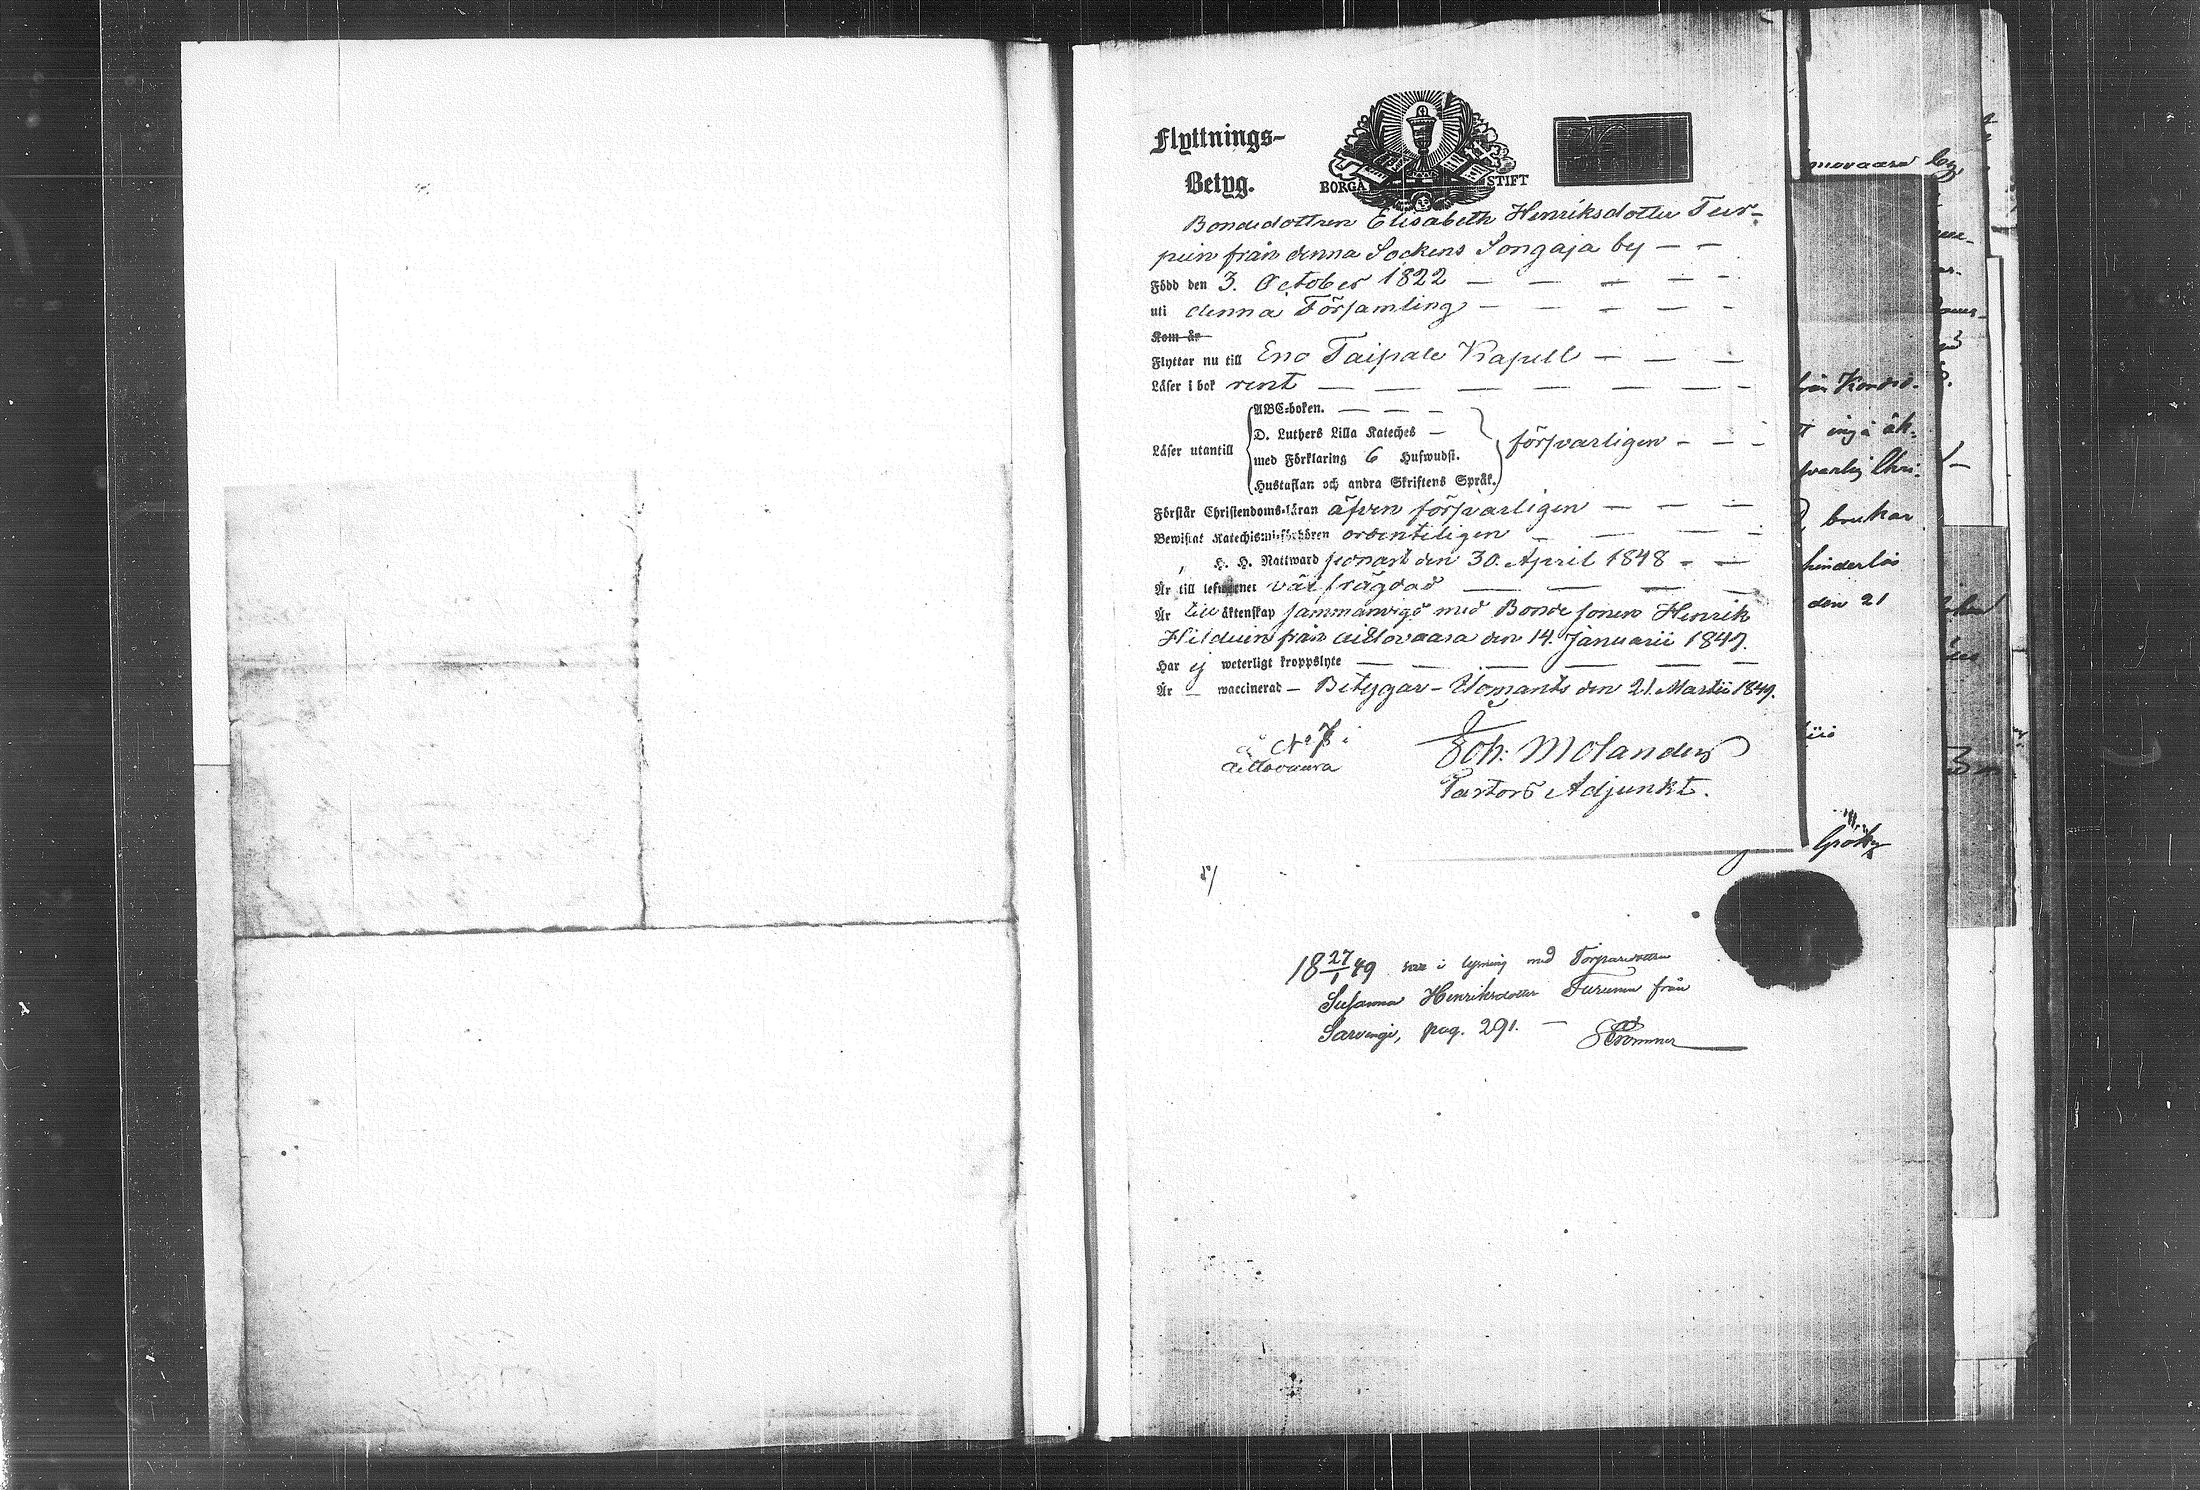 Flyttnings-
Betyg.
BORGÅ STIFT
Bondedottren Elisabeth Henriksdotter Tur-
pein från denna Sockens Songaja by — —
Född den 3. October 1822 — — — — —
uti denna Församling — — — — —
Kom år
Flyttar nu till Eno Taipale Kapell — — —
Läser i bok rent — — — — — — —
Läser utantill
ABC-boken. — — —
D. Luthers Lilla Kateches —
med Förklaring 6 Hufwudst.
Hustaflan och andra Skriftens Språk.
försvarligen - - -
Förstår Christendoms-läran äfven försvarligen — — —
Bewistat Katechismiförhören ordenteligen — — — —
„ H. H. Nattward senast den 30. April 1848 - —
Är till lefwernet väl frägdad — — — —
Är till äktenskap sammanvigd med Bonde sonen Henrik
Hilduin från Aittovaara den 14. Januarii 1849.
Har ej weterligt kroppslyte — — — — — —
Är — waccinerad — Betygar — Ilomants den 21. Martii 1849.
No 7.
Aittovaara
Joh: Molander
Pastors Adjunkt.
5/
18 27/1 49 i lysning med Torparedottren
Susanna Henriksdotter Turunen från
Sarvingi, pag. 291. —
movaara by
från Kondid.
t ingå äk-
svarlig Chri-
brukar
hinderlös
den 21